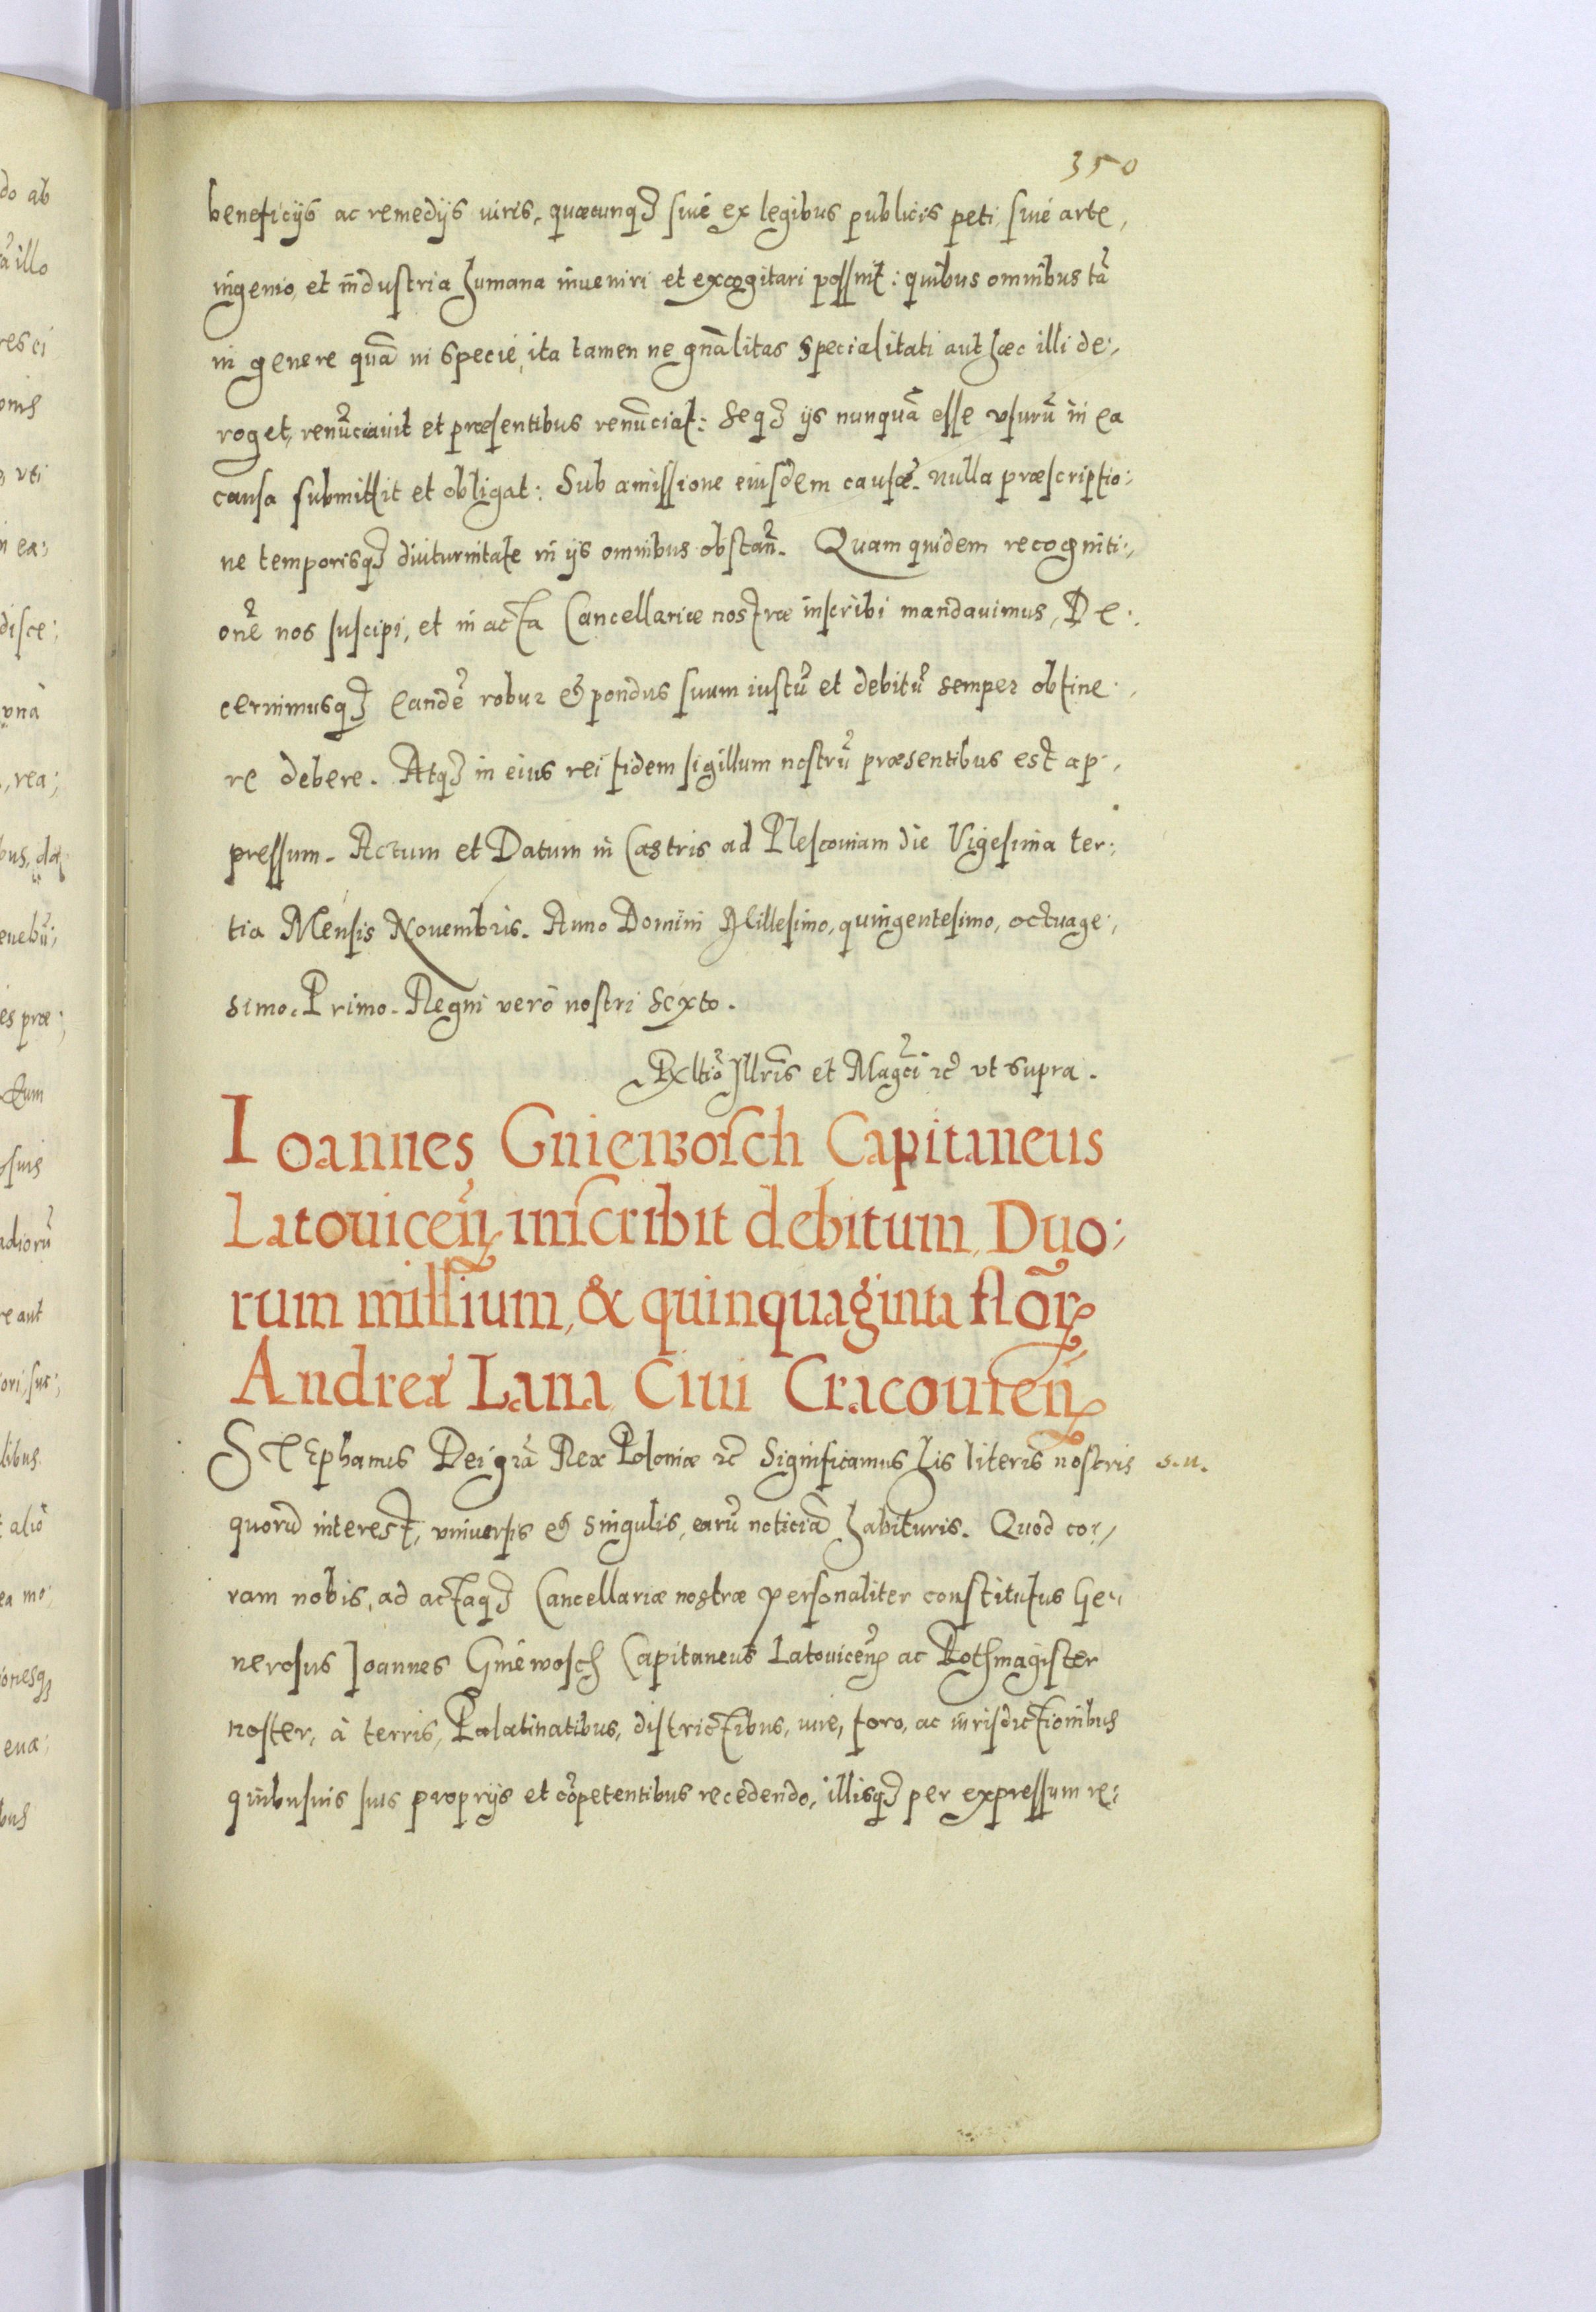 350
beneficijs ac remedijs iuris, quæcunqȝ siue ex legibus publicis peti, siue arte,
ingenio, et industria humana inueniri et excogitari possint: quibus omnibus tā
in genere quā in specie, ita tamen ne gn̄alitas specialitati aut hæc illi de:
roget, renūciauit et præsentibus renūciat: Seqȝ ijs nunquā esse vsurū in ea
causa submittit et obligat: Sub amissione eiusdem causæ. nulla præscriptio:
ne temporisqȝ diuturnitate in ijs omnibus obstan̄. Quam quidem recogniti:
onē nos suscipi, et in acta Cancellariæ nostræ inscribi mandauimus, De:
cernimusqȝ eandē robur et pondus suum iustū et debitū semper obtine:
re debere. Atqȝ in eius rei fidem sigillum nostrū præsentibus est ap:
pressum. Actum et Datum in Castris ad Plescouiam die Vigesima ter:
tia Mensis Nouembris. Anno Domini Millesimo, quingentesimo, octuage:
simo. Primo. Regni verò nostri Sexto.
Rxltiō Illris̄ et Magcī ꝛc̄ vt supra.
Ioannes Gniewosch Capitaneus
Latouicen̄ inscribit debitum Duo:
rum millium, & quinquaginta flor̄
Andreæ Lana Ciui Cracouien̄
Stephanus Dei gr̄a Rex Poloniæ ꝛc̄ Significamus his literis nostris s. u.
quorū interest, vniuersis et singulis, earū noticiā habituris. Quod co:
ram nobis, ad actaqȝ Cancellariæ nostræ personaliter constitutus Ge:
nerosus Ioannes Gniewosch Capitaneus Latouicen̄ ac Rothmagister
noster, à terris, Palatinatibus, districtibus, iure, foro, ac iurisdictionibus
quibusuis suis proprijs et cōpetentibus recedendo, illisqȝ per expressum re: